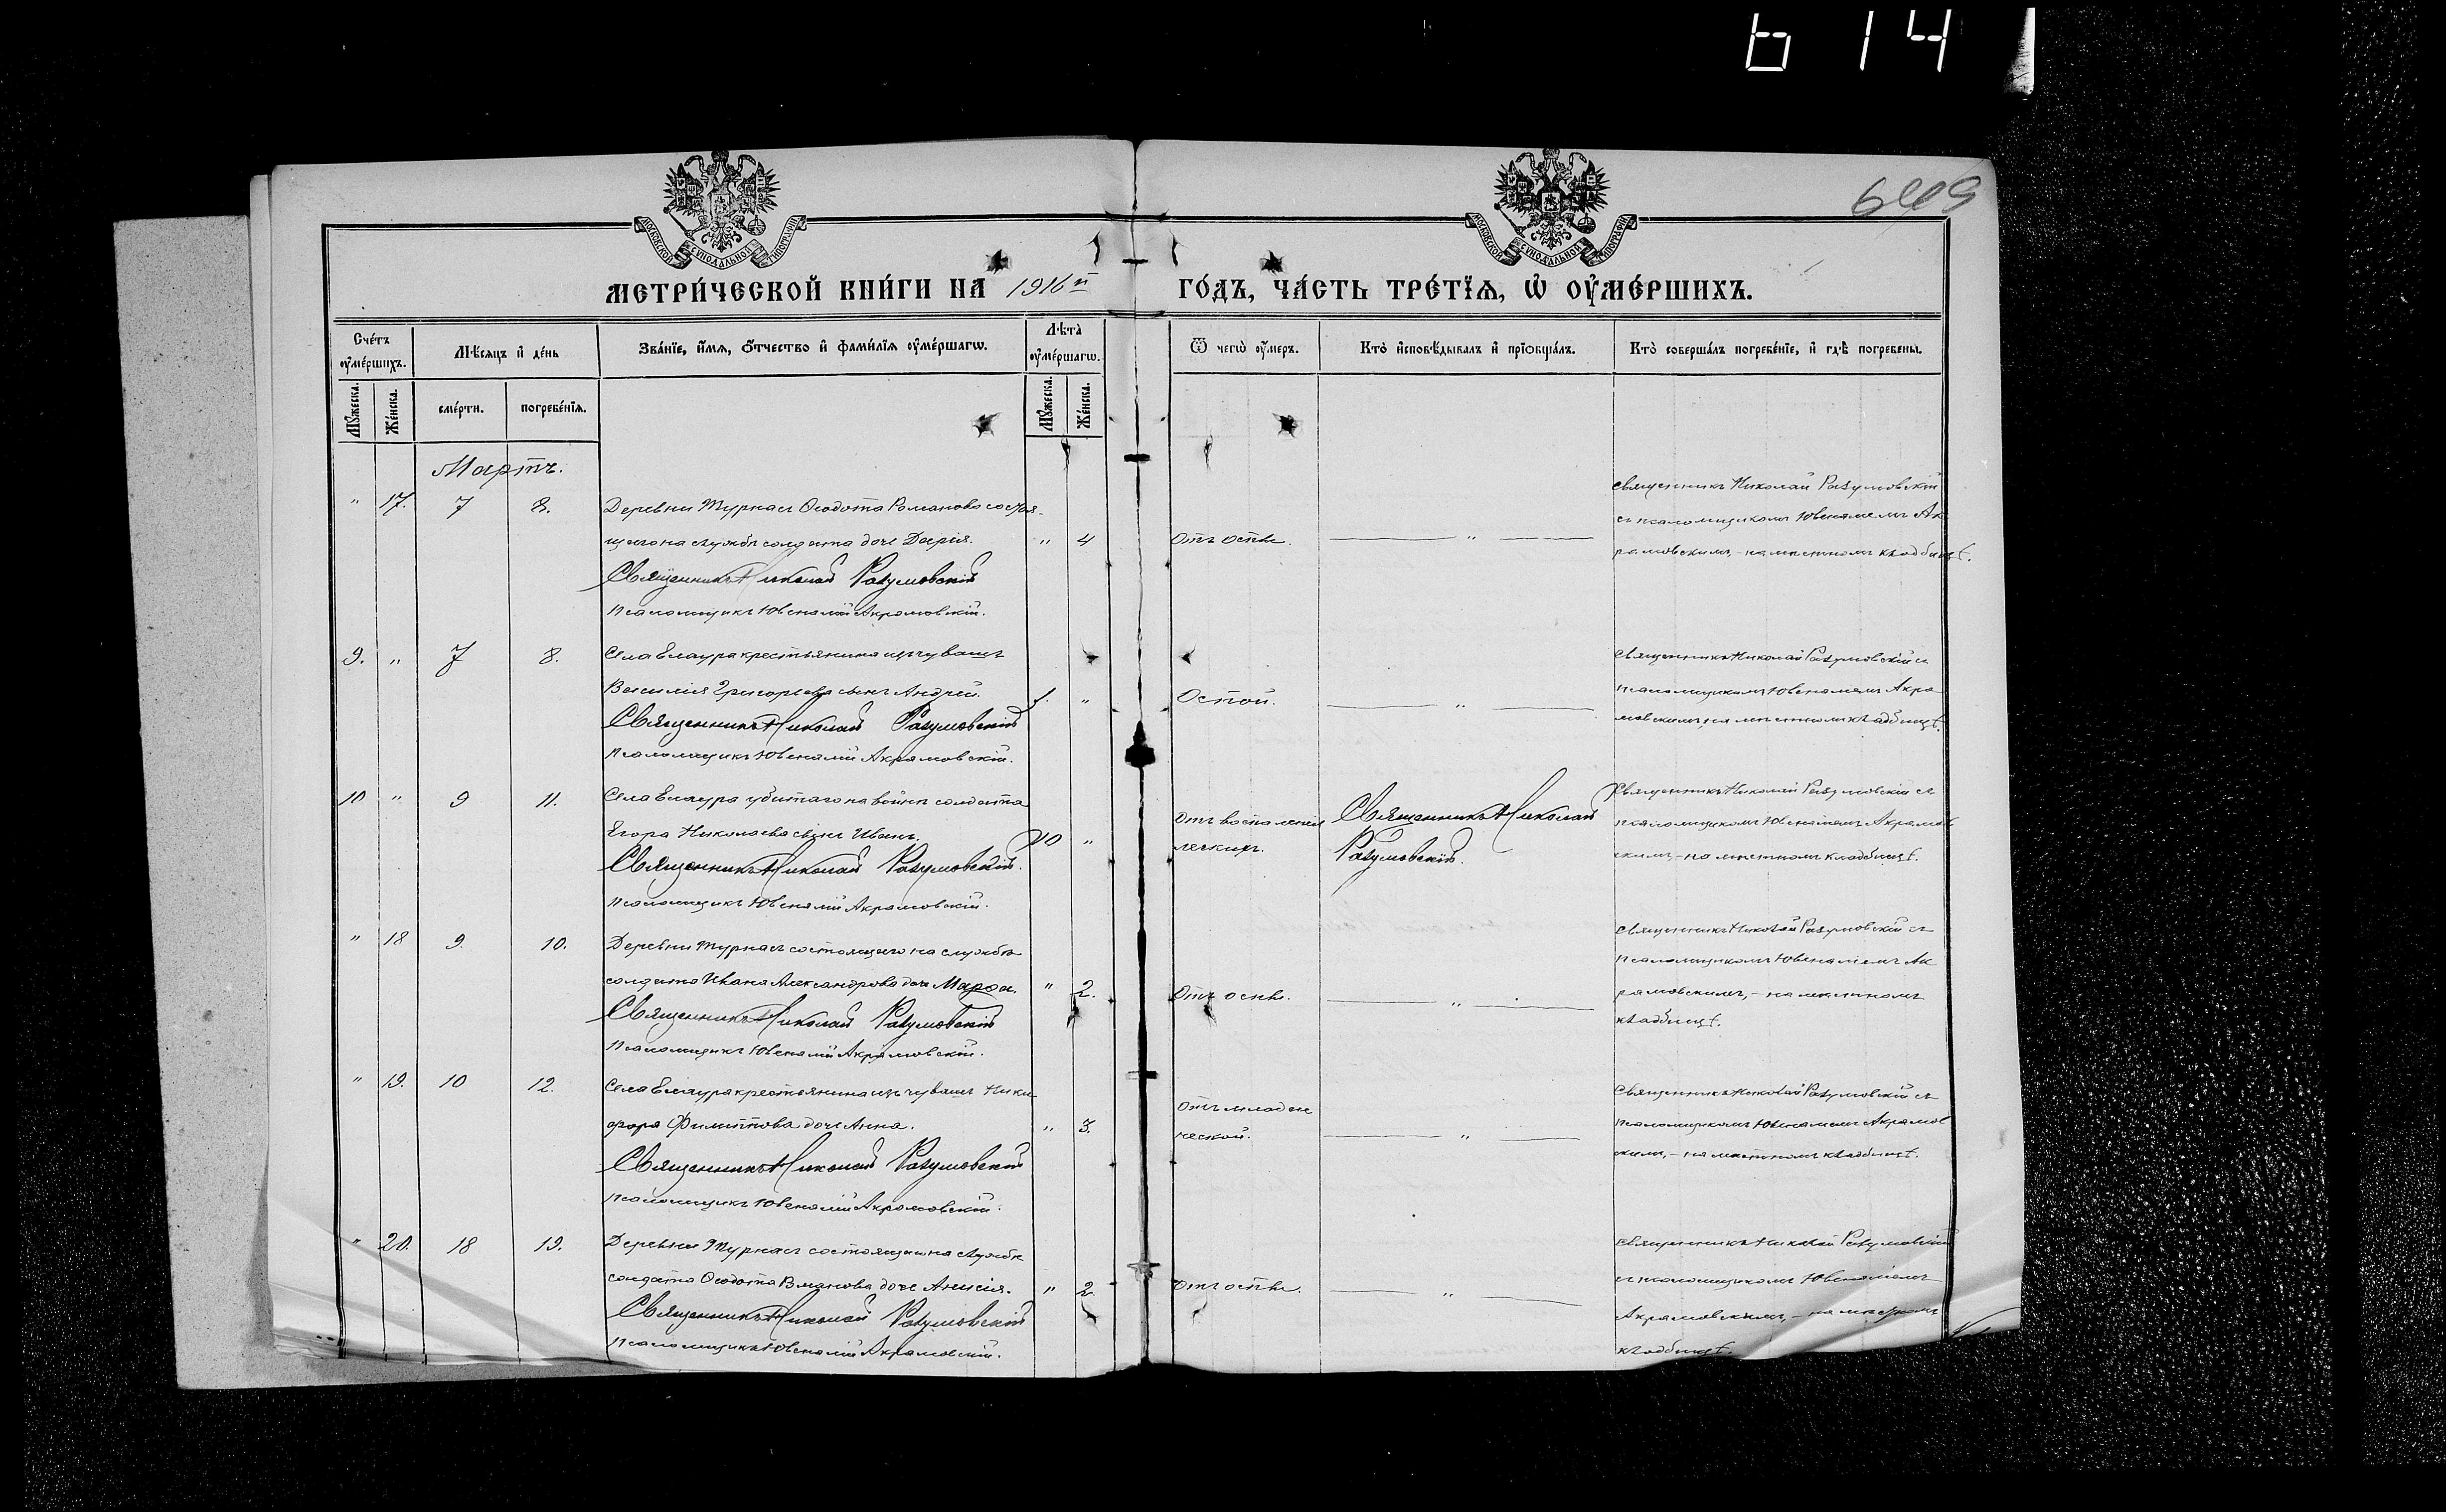 614
649
МОСКОВСКОЙ СѴНОДАЛЬНОЙ ТИПОГРАФІИ
МОСКОВСКОЙ СѴНОДАЛЬНОЙ ТИПОГРАФІИ
МЕТРИ́ЧЕСКОЙ КНИ́ГИ НА 1916й ГО́ДЪ, ЧА́СТЬ ТРЕ́ТЇѦ, Ѡ ОУМЕ́РШИХЪ.
Сче́тъ оуме́ршихъ.
Мѣ́сяцъ и де́нь
Зва́нїе, и́мѧ, ѻ́тчество и фами́лїѧ оуме́ршагѡ.
Лѣ́та оуме́ршагѡ.
Ѿ чегѡ̀ оу́меръ.
Кто̀ исповѣ́дывалъ и прїобща́лъ.
Кто̀ соверша́лъ погребе́нїе, и гдѣ̀ погребены̀.
Мꙋ́жеска.
Же́нска.
сме́рти.
погребе́нїѧ.
Мꙋ́жеска.
Же́нска.
Мартъ.
" 17. 7 8.
Деревни Турнасъ Ѳеодота Романова состоя-
щаго на службѣ солдата дочь Дарія. " 4
Священникъ Николай Разумовскій
Псаломщикъ Ювеналій Акрамовскій.
Отъ оспы. "
Священникъ Николай Разумовскій
съ псаломщикомъ Ювеналіемъ Ак
рамовскимъ,- на мѣстномъ кладбищѣ.
9. " 7 8.
Села Елаура крестьянина изъ чувашъ
Василія Григорьева сынъ Андрей. 1. "
Священникъ Николай Разумовскій
Псаломщикъ Ювеналій Акрамовскій.
Оспой. "
Священникъ Николай Разумовскій съ
псаломщикомъ Ювеналіемъ Акра
мовскимъ, на мѣстномъ кладбищѣ.
10 " 9 11.
Села Елаура убитаго на войнѣ солдата
Егора Николаева сынъ Иванъ. 10 "
Священникъ Николай Разумовскій.
Псаломщикъ Ювеналій Акрамовскій.
Отъ воспаленія
легкихъ.
Священникъ Николай
Разумовскій.
Священникъ Николай Разумовскій съ
псаломщикомъ Ювеналіемъ Акрамов
скимъ,- на мѣстномъ кладбищѣ.
" 18 9. 10.
Деревни Турнасъ состоящаго на службѣ
солдата Ивана Александрова дочь Марѳа. " 2.
Священникъ Николай Разумовскій
Псаломщикъ Ювеналій Акрамовскій.
Отъ оспы. "
Священникъ Николай Разумовскій съ
Псаломщикомъ Ювеналіемъ Ак
рамовскимъ,- на мѣстномъ
кладбищѣ.
" 19. 10 12.
Села Елаура крестьянина изъ чувашъ Ники
фора Филиппова дочь Анна. " 3.
Священникъ Николай Разумовскій
Псаломщикъ Ювеналій Акрамовскій.
Отъ младен
ческой. "
Священникъ Николай Разумовскій съ
Псаломщикомъ Ювеналіемъ Акрамов
скимъ,- на мѣстномъ кладбищѣ.
" 20. 18 19.
Деревни Турнасъ состоящаго на службѣ
солдата Ѳеодота дочь Анисія. " 2.
Священникъ Николай Разумовскій
Псаломщикъ Ювеналій Акрамовскій.
Отъ оспы. "
Священникъ Николай Разумовскій
съ псаломщикомъ Ювеналіемъ
Акрамовскимъ,- на мѣстномъ
кладбищѣ.